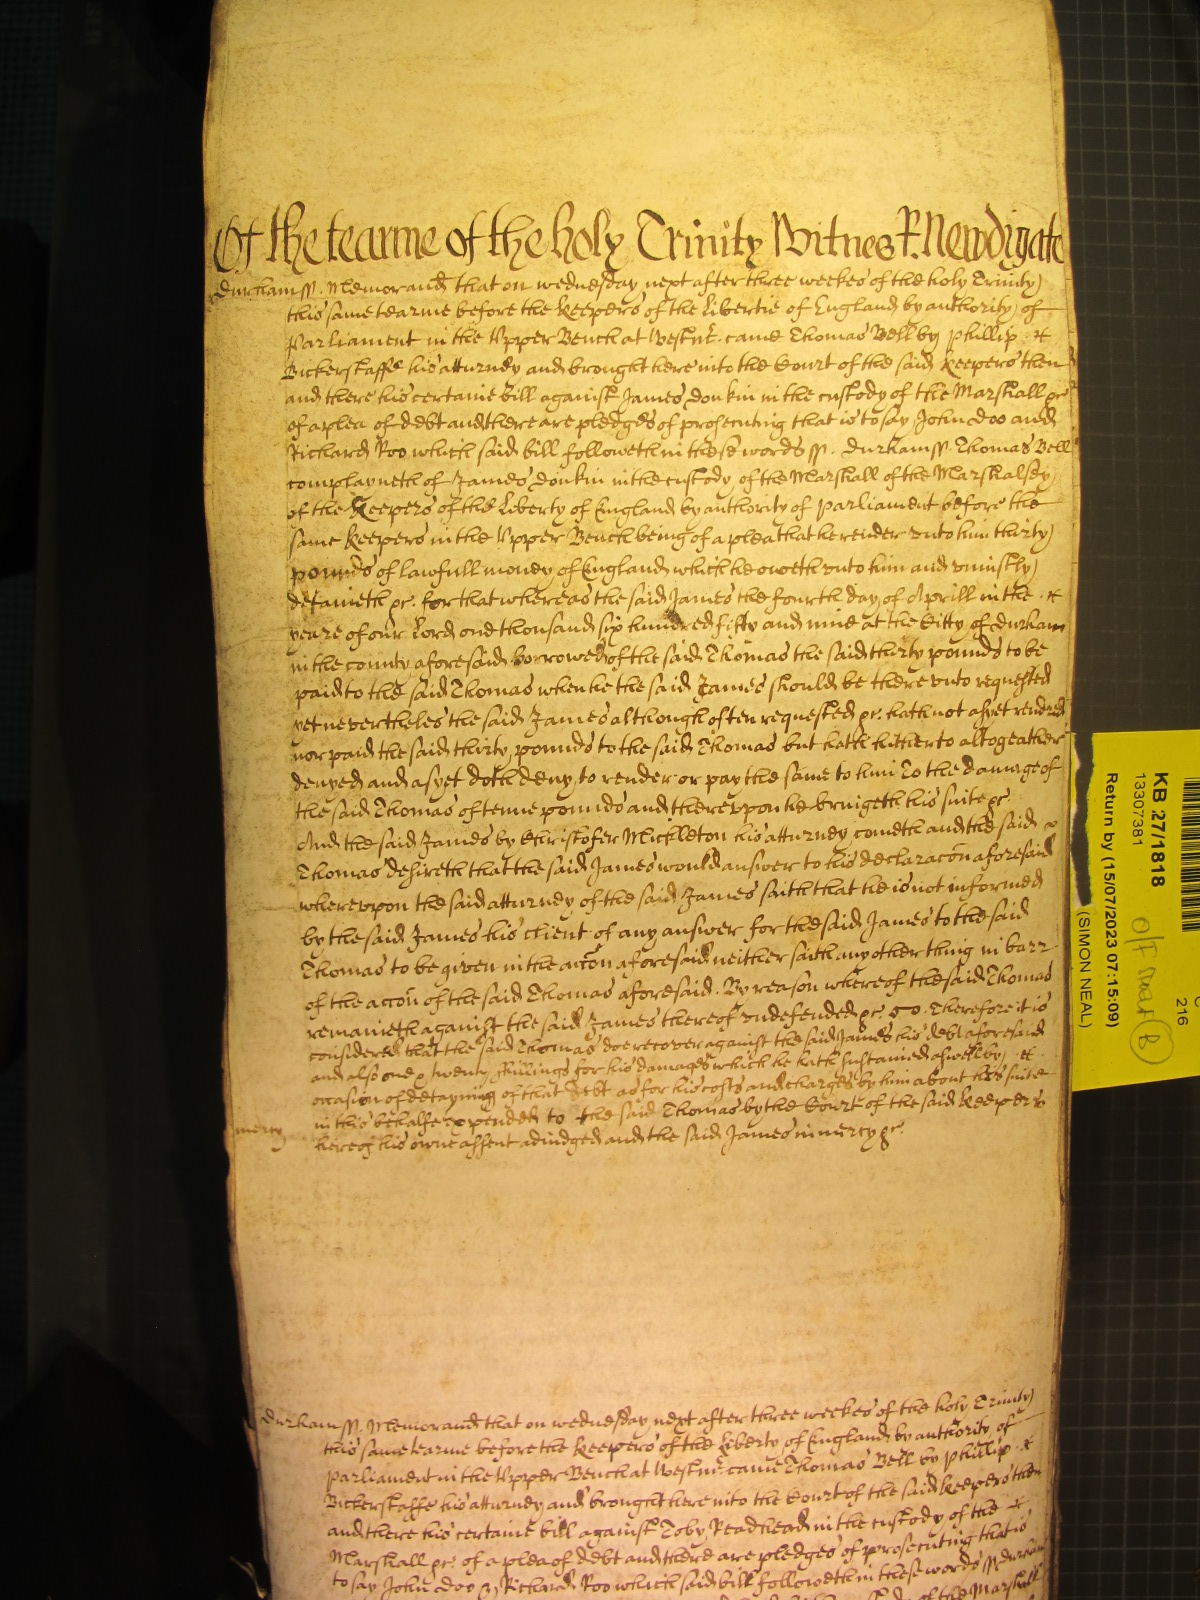 Of the tearme of the holy Trinity Witnes R. Newdigate
Durham ss. Memorand that on wednesday next after three weekes of the holy Trinity
this same tearme before the keepers of the libertie of England by authority of
Parliament in the Upper Bench at Westmr. came Thomas Bell by Phillip
Bickerstaffe his atturney and brought here into the Court of the said keepers then
and there his certaine bill against James Donkin in the custody of the Marshall &c
of a plea of debt and there are pledges of prosecuting that is to say John Doo and
Richard Roo which said bill followeth in these words ss. Durham ss. Thomas Bell
complayneth of James Donkin in the custody of the Marshall of the Marshalsey
of the Keepers of the liberty of England by authority of Parliament before the
same keepers in the Upper Bench being of a plea that he render unto him thirty
pounds of lawfull money of England which he oweth unto him and uniustly
detaineth &c. for that whereas the said James the fourth day of Aprill in the
yeare of our Lord one thousand six hundred fifty and nine at the Citty of Durham
in the county aforesaid borrowed of the said Thomas the said thirty pounds to be
paid to the said Thomas when he the said James should be thereunto requested
yet nevertheles the said James although often requested &c. hath not as yet rendred
nor paid the said thirty pounds to the said Thomas but hath hitherto altogeather
denyed and as yet doth deny to render or pay the same to him To the damage of
the said Thomas of tenne pounds and thereupon he bringeth his suite &c.
And the said James by Christofer Mickleton his atturney cometh and the said
Thomas desireth that the said James would answer to his declaracon aforesaid
whereupon the said atturney of the said James saith that he is not informed
by the said James his client of any answer for the said James to the said
Thomas to be given in the accon aforesaid neither saith any other thing in barr
of the accon of the said Thomas aforesaid. By reason whereof the said Thomas
remaineth against the said James thereof undefended &c. so. Therefore it is
considered that the said Thomas doe recover against the said James his debt aforesaid
and also one & twenty shillings for his damages which he hath sustained aswell by
occasion of detayning of that debt as for his costs and charges by him about his suite
in this behalfe expended to the said Thomas by the Court of the said keepers
mercy
here of his owne assent adiudged and the said James in mercy &c.
KB 27/1818
13307381
Return by (15/07/2023 07:15:09)
(SIMON NEAL)
216
Durham ss. Memorand that on wednesday next after three weekes of the holy Trinity
this same tearme before the keepers of the liberty of England by authority of
Parliament in the Upper Bench at Westmr. came Thomas Bell by Phillip
Bickerstaffe his atturney and brought here into the Court of the said keepers then
and there his certaine bill against Toby Readhead in the custody of the
Marshall &c. of a plea of debt and there are pledges of prosecuting that is
to say John Doo & Richard Roo which said bill followeth in these words ss. Durham
of the Marshall